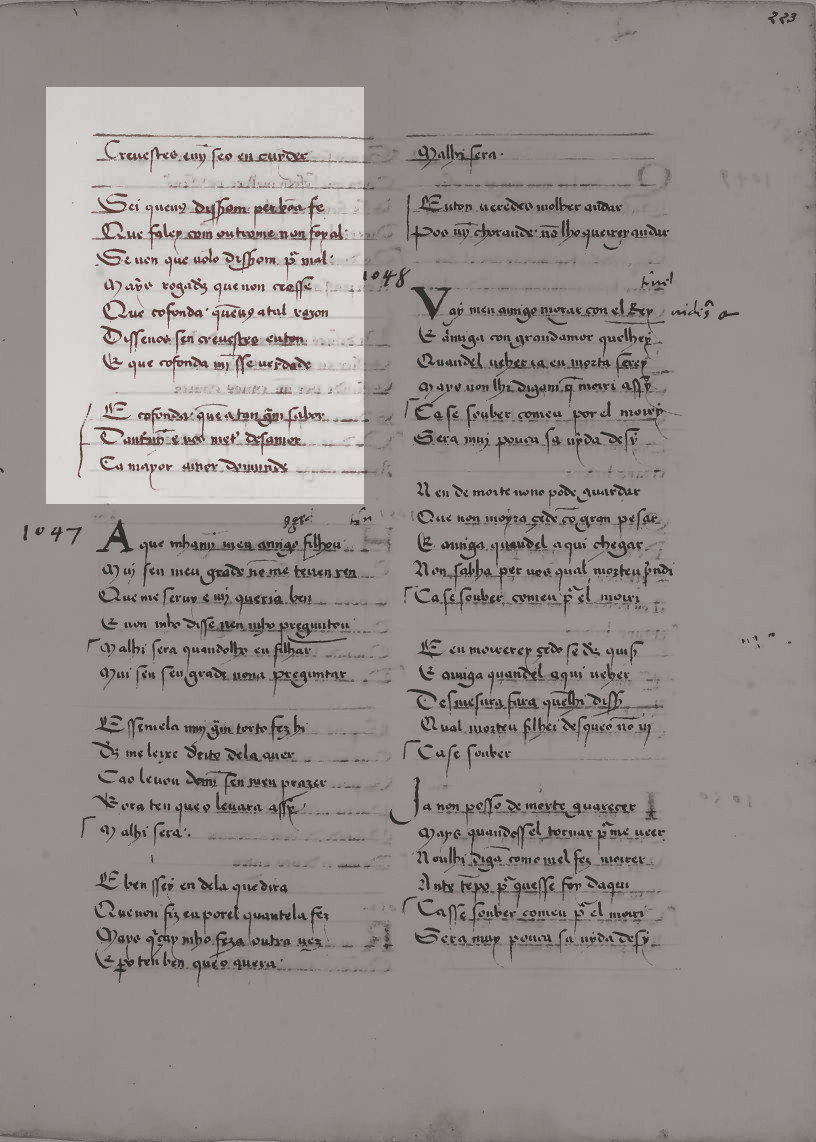 Creuestes emj̃ seo en cuydei
Sei quem9 dissom per bõa fe
Que faley com outrome non foy al
Se uon que uolo dissom pr̃ mal
Mays rogad9 que non cresse
Que cofonda quẽu9 atal rezon
Dissenos sen creuestes enton
E que cofonda mj̃ sse uerdade
E cofonda que a ton g̃m sabor
Ca mayor amor domunde
1047
A que mhamj̃ meu amigo filhou
Muj sen meu grade nõ me teuen ren
Que me seruy e mj queria ben
E non mho disse nen mho preguntou
Malhi sera quandolho eu filhar
Muj sen seu grade nona preguntar
E ssemela muj g̃m torto fez hi
d3̃ me leixe dr̃ito dela auer
Ca o leuou domj̃ sen meu prazer
E ora ten que o leuara assy
Malhi sera
E ben ssey en dela que dira
Que non fiz eu porel quantela fez
Mays q̃çay mho feza outra uez
E pero ten ben que o auera
223
Malhi sera
Enton ueredes molher andar
Pos mj̃ chorande nõ lho queirey andar
1048
Vay meu amigo morar con el Rey
E amiga con grandamor quelhey
Quandel ueher ia eu morta serey
Mays non lhi digam q̃ meiri assy
Ca se souber comeu por el moiry
Sera muj pouca sa uyda desy
Nen de morte nono pode guardar
Que non moyra çede cõ gran pesar
E amiga quandel aqui chegar
Non sabha per uos qual morteu p̃ndi
Ca se souber comeu pr̃ el moiri
E eu moirerey çedo se d3̃ quis
E amiga quandel aqui ueher
Desmesura fara quẽlhi diss
Qual morteu filhei desqueo nõ uj
Ca se souber
Ja non posso de morte guarecer
Mays quandossel tornar pr̃ me ueer
Noulhi digã como mel fez moirer
Ante tẽpo pr̃ quesse foy daqui
Casse souber comeu pr̃ el moiri
Sera muy pouca sa uyda desy